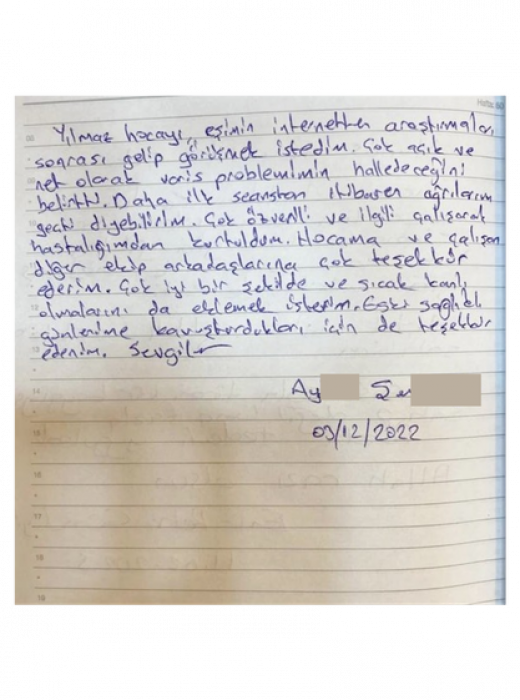 Hafta 50
Yılmaz hocayı, eşimin internetten araştırmaları
sonrası gelip görüşmek istedim. Çok açık ve
net olarak varis problemimin halledeceğini
belirtti. Daha ilk seanstan itibaren ağrılarım
geçti diyebilirim. Çok özverili ve ilgili çalışarak
hastalığımdan kurtuldum. Hocama ve çalışan
diğer ekip arkadaşlarına çok teşekkür
ederim. Çok iyi bir şekilde ve sıcak kanlı
olmalarını da eklemek isterim. Eski sağlıklı
günlerime kavuşturdukları için de teşekkür
ederim. Sevgiler
Ay
09/12/2022
14
15
16
17
18
19